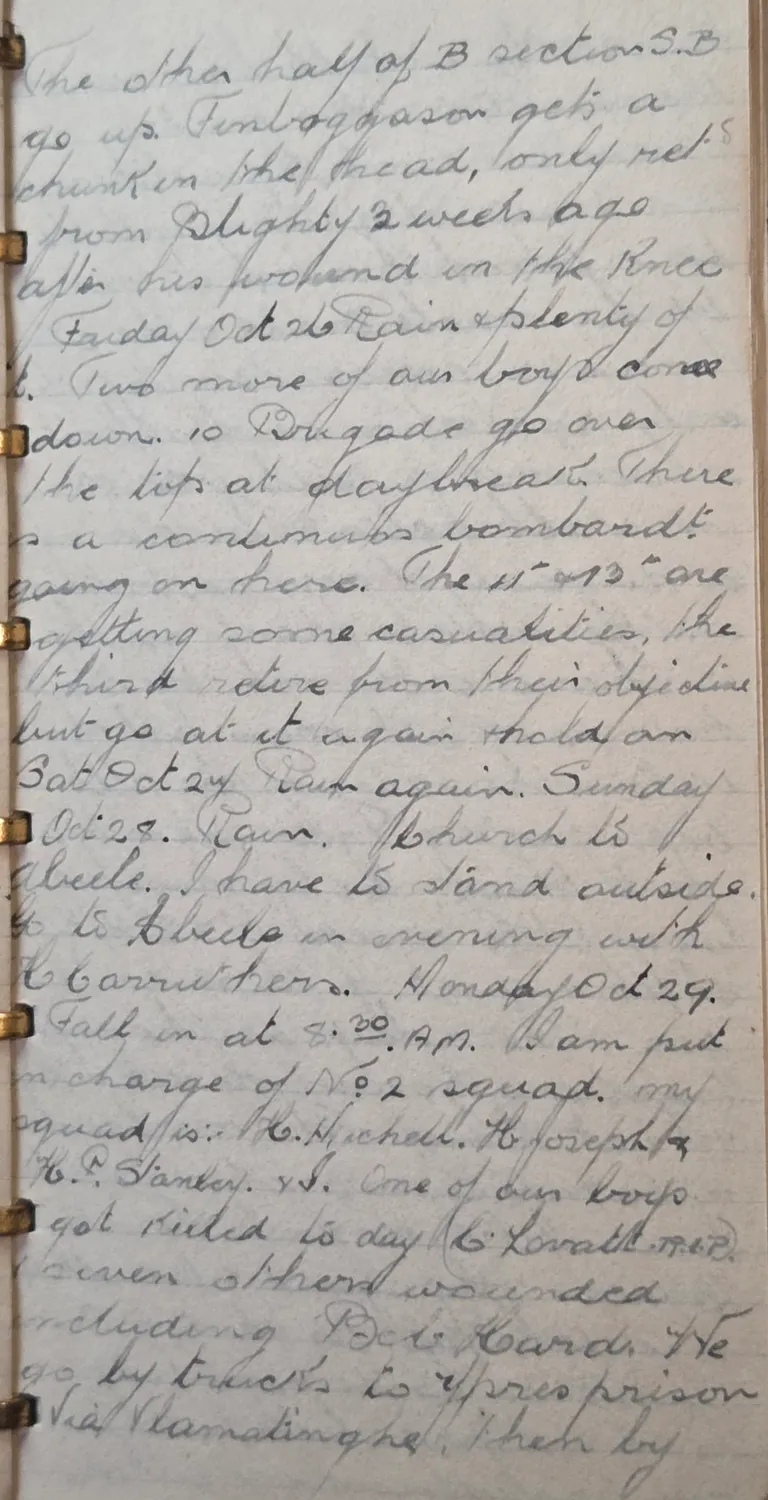 The other half of B section S.B
go up. Finboggason gets a
chunk in the head, only ret^s
from Blighty 3 weeks ago
after his wound in the Knee
Friday Oct 26 Rain & plenty of
t. Two more of our boys come
down. 10 Brigade go over
the top at daybreak. There
s a continuos bombardt.
going on here. The 11" & 13" are
getting some casualities, the
third retire from their objective
but go at it again & hold on
Sat Oct 27 Rain again. Sunday
Oct 28. Rain. Church to
Abeele. I have to stand outside.
Go to Abeele in evening with
H Carruthers. Monday Oct 29.
Fall in at 8.30. A.M. I am put
in charge of No 2 squad. my
squad is:- H. Hichell. H Joseph &
H.P. Stanley. & I. One of our boys
got Killed to day (C. Lovatt. R.I.P).
seven others wounded
including Bob Hard. We
go by trucks to Ypres prison
Via Vlamatinghe, then by